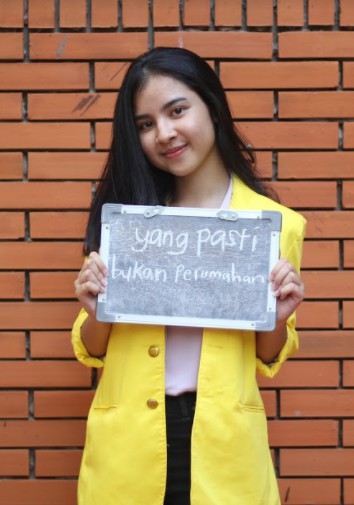 yang pasti
bukan perumahan